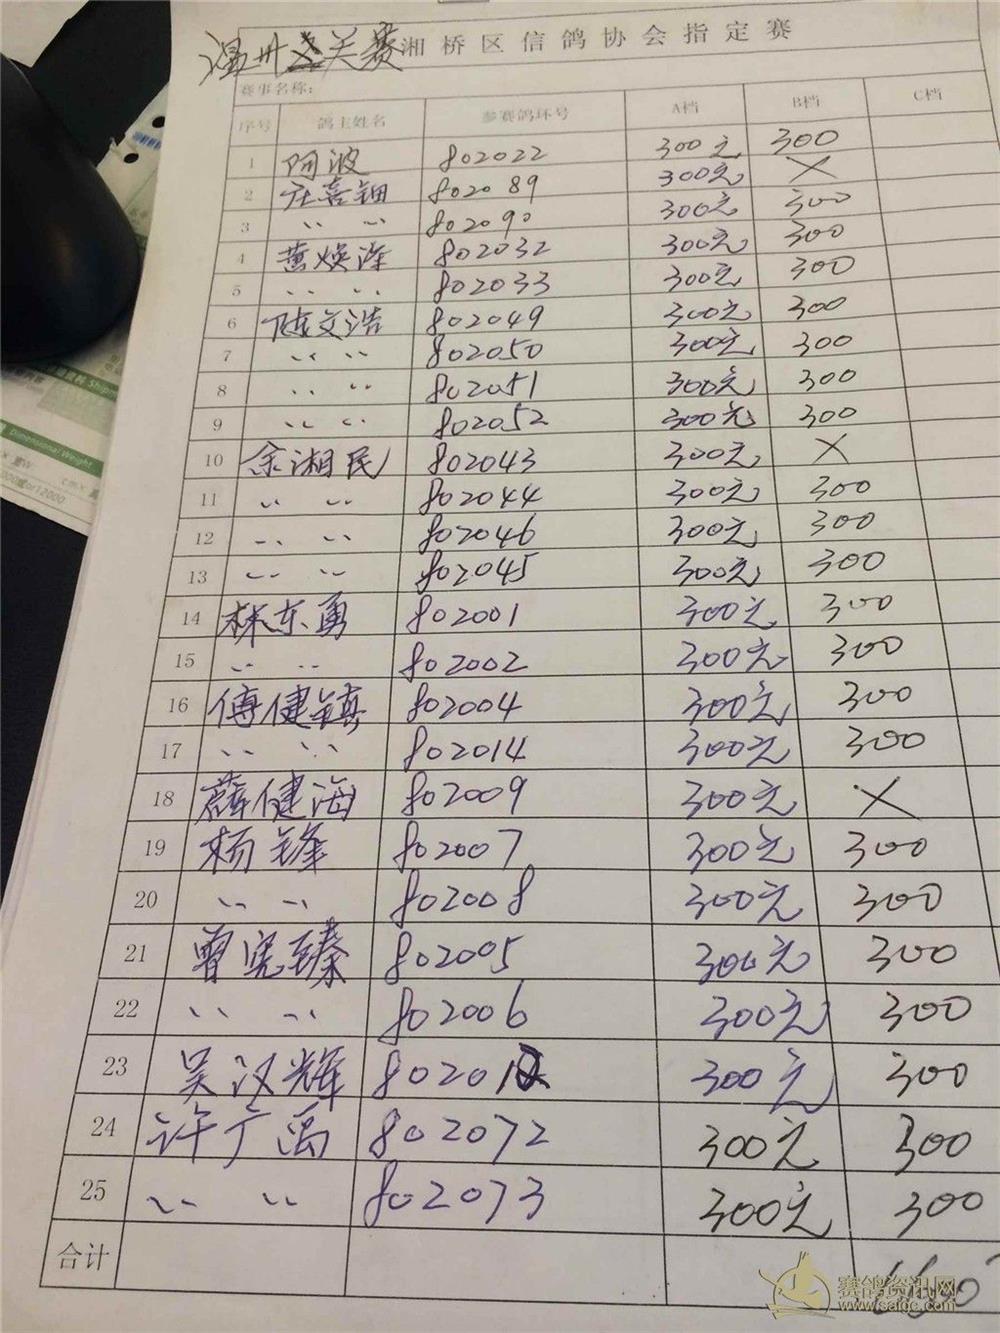 温州 关赛 湘桥区信鸽协会指定赛
赛事名称:
序号 鸽主姓名 参赛鸽环号 A档 B档 C档
1 阿波 802022 300元 300
2 庄喜钿 802089 300元 ×
3 〃 〃 802090 300元 300
4 黄焕泽 802032 300元 300
5 〃 〃 802033 300元 300
6 陆文浩 802049 300元 300
7 〃 〃 802050 300元 300
8 〃 〃 802051 300元 300
9 〃 〃 802052 300元 300
10 余湘民 802043 300元 ×
11 〃 〃 802044 300元 300
12 〃 〃 802046 300元 300
13 〃 〃 802045 300元 300
14 林东勇 802001 300元 300
15 〃 〃 802002 300元 300
16 傅健镇 802004 300元 300
17 〃 〃 802014 300元 300
18 薛健海 802009 300元 ×
19 杨锋 802007 300元 300
20 〃 〃 802008 300元 300
21 曾宪臻 802005 300元 300
22 〃 〃 802006 300元 300
23 吴汉辉 802012 300元 300
24 许广禹 802072 300元 300
25 〃 〃 802073 300元 300
合计
赛鸽资讯网
www.saige.com
Dimensional Weight